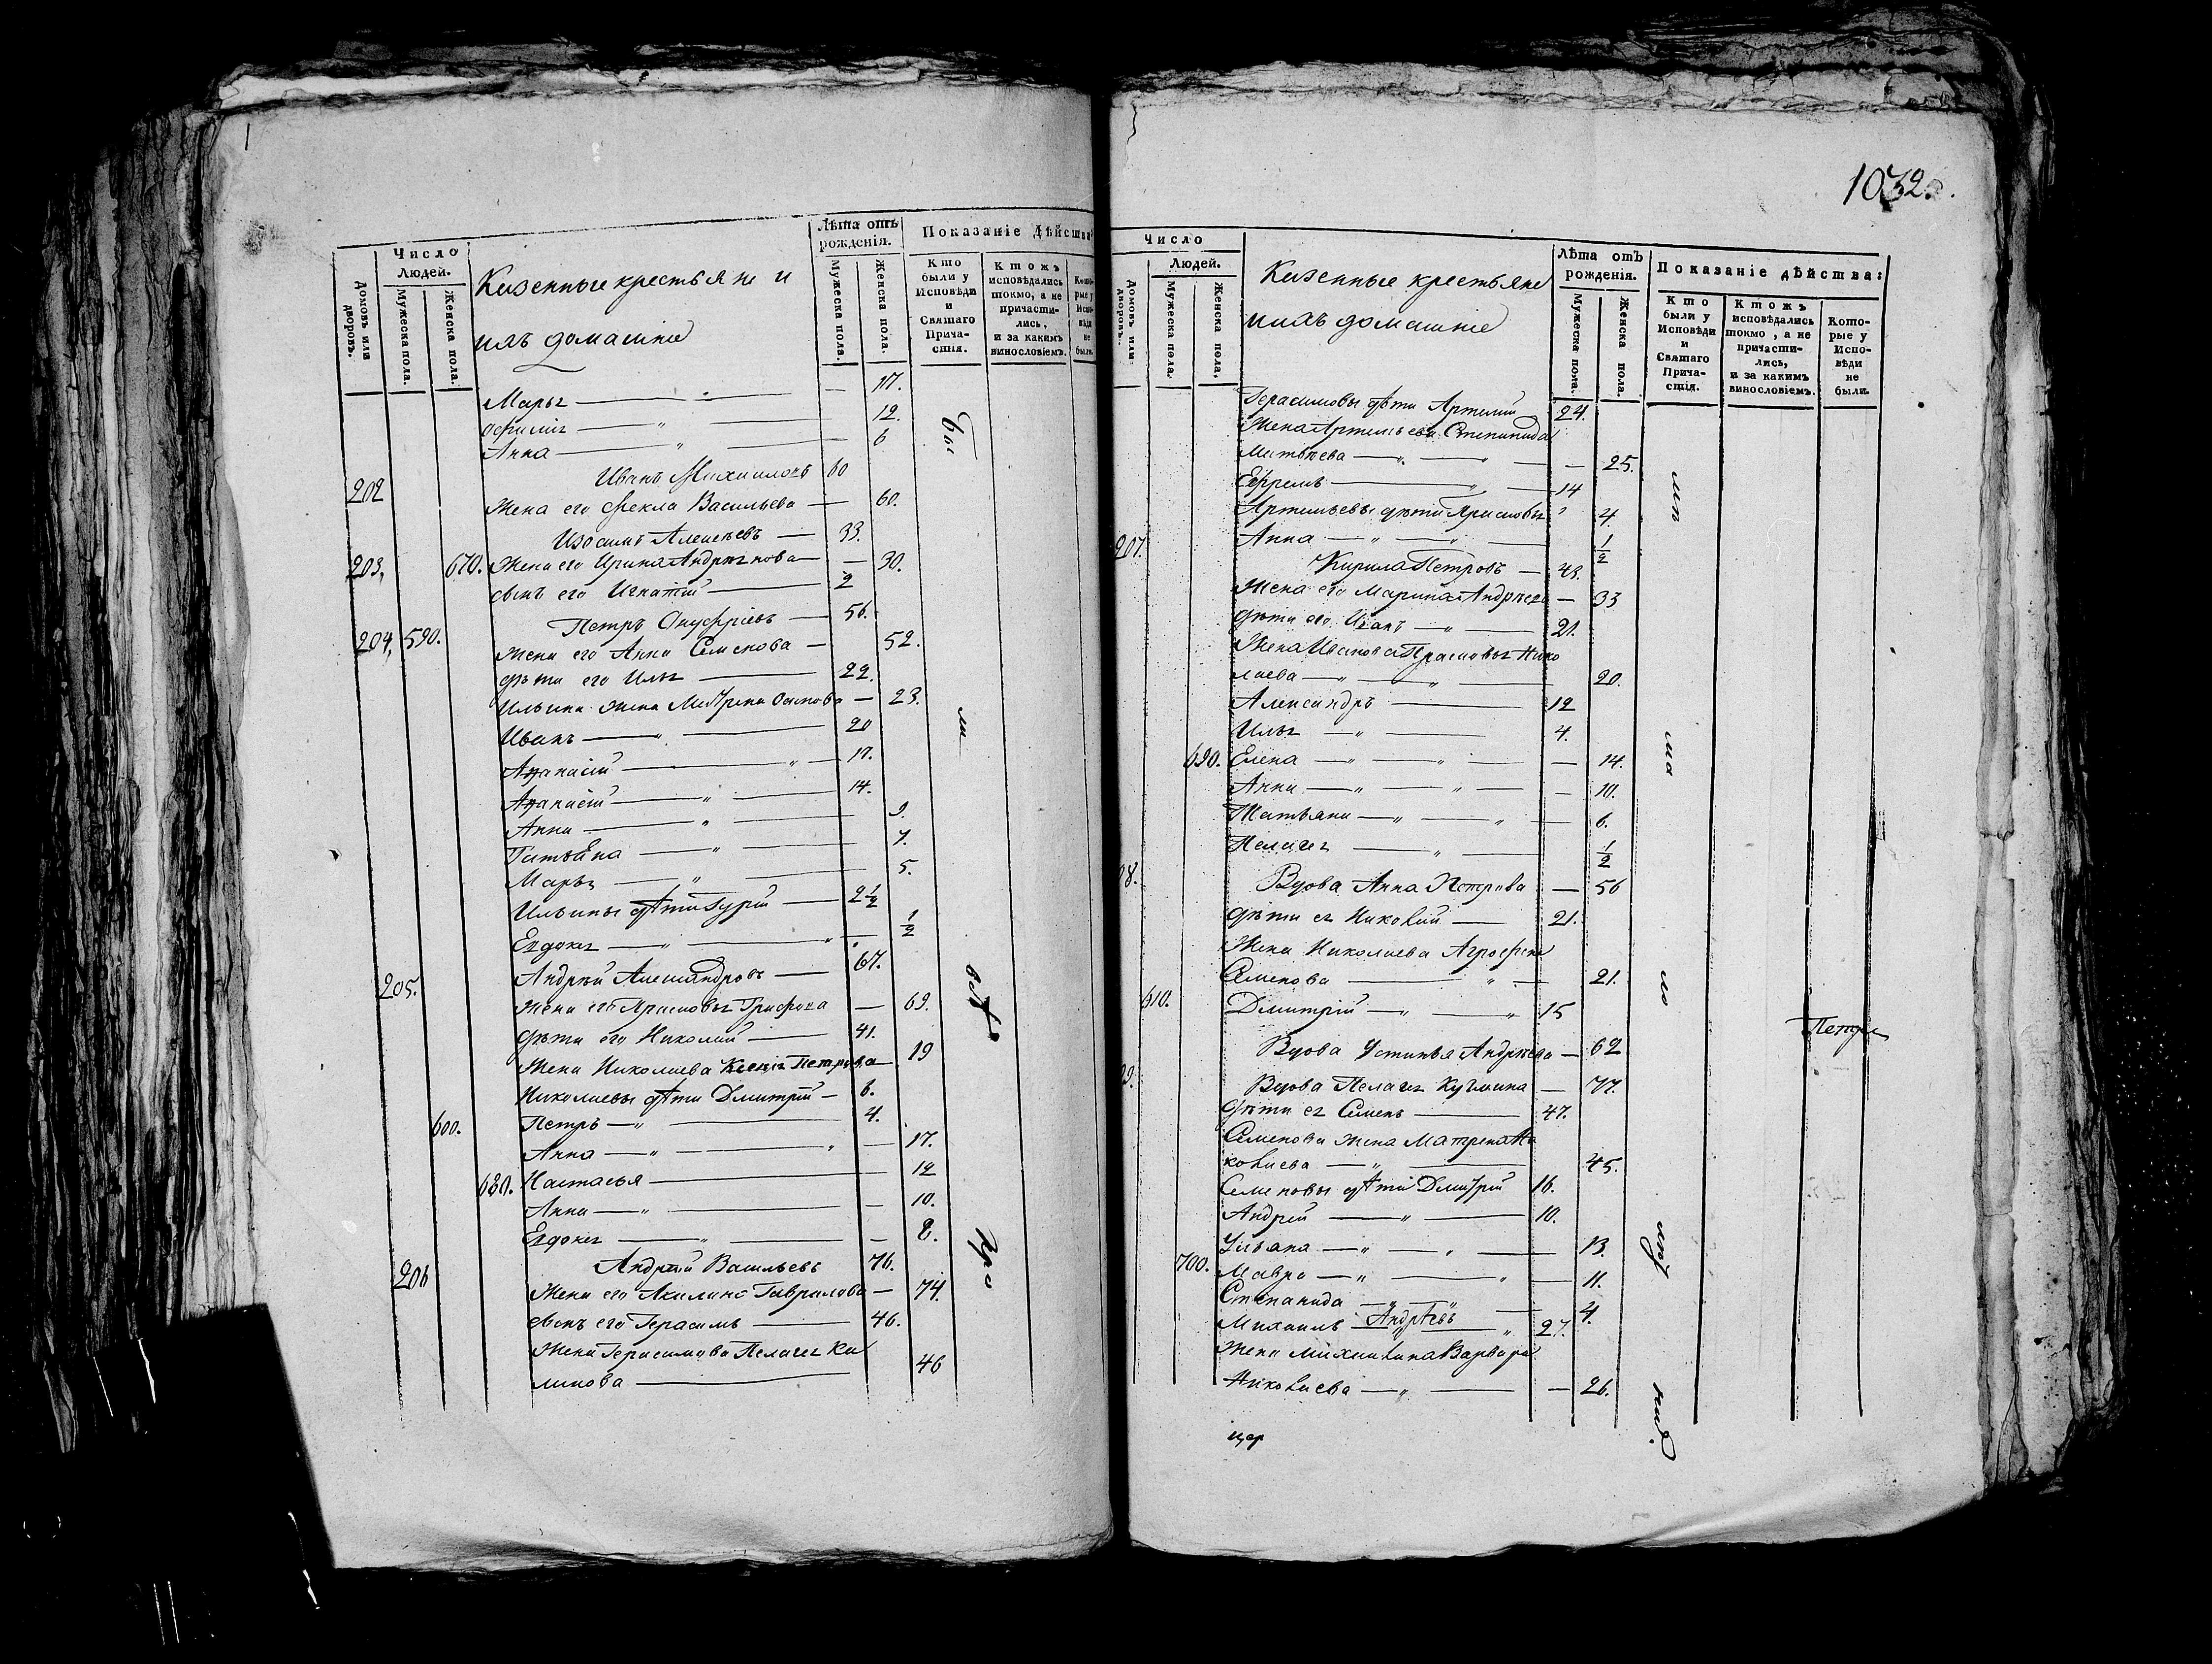 1032
Домовъ или дворовъ.
Число Людей.
Мужеска пола.
Женска пола.
Казенные крестьяне и
ихъ домашніе
Лѣта отъ рожденія.
Мужеска пола.
Женска пола.
Показаніе дѣйства
Кто были у Исповѣди и Святаго Прича-стія.
Ктожъ исповѣдались токмо, а не причасти-лись, и за какимъ винословіемъ.
Марья — 17.
— 12.
Анна — 6
202 Иванъ Михайловъ 60
Жена его Фекла Васильева — 60.
Изосимъ Алексѣевъ — 33.
203, 670. Жена его Ирина Андреянова — 30.
сынъ его Игнатій — 2
204, 590. Петръ Онуфріевъ — 56.
Жена его Анна Семенова — 52.
дѣти его Илья — 22.
Ильина жена Матрена Осипова — 23.
Иванъ — 20
Афанасій — 17.
Афанасій — 14.
Анна — 9.
Татьяна — 7.
Марья — 5.
Ильины дѣти Гурій — 2 1/2
Евдокея — 1/2
205. Андрей Александровъ — 67.
Жена его Прасковья Трифона — 69.
дѣти его Николай — 41.
Жена Николаева Ксенія Петрова — 19
Николаевы дѣти Дмитрій — 6.
600. Петръ — 4.
Анна — 17.
680. Настасья — 12
Анна — 10.
Евдокея — 8.
206 Андрей Васильевъ 76.
Жена его Акилина Гаврилова — 74.
сынъ его Герасимъ — 46.
Жена Герасимова Пелагея Ка
линова — 46
Домовъ или дворовъ.
Число Людей.
Мужеска пола.
Женска пола.
Казенные крестьяне
и ихъ домашніе
Лѣта отъ рожденія.
Мужеска пола.
Женска пола.
Показаніе дѣйства:
Кто были у Исповѣди и Святаго Прича-стія.
Ктожъ исповѣдались токмо, а не причасти-лись, и за какимъ винословіемъ.
Кото-рые у Испо-вѣди не были.
Герасимовы дѣти Артемій 24.
Жена Артемьева Степанида
Матвѣева — 25.
Ефремъ — 14
Артемьевы дѣти Прасковья 4.
Анна — 1/2
207. Кирила Петровъ — 43.
Жена его Марина Андреева — 33
дѣти его Иванъ — 21.
Жена Иванова Прасковья Нико
лаева — 20.
Александръ — 12
Илья — 4.
690. Елена — 14.
Анна — 10.
Татьяна — 6.
Пелагея — 1/2
08. Вдова Анна Петрова — 56
дѣти ея Николай — 21.
Жена Николаева Агрофена
Семенова — 21.
610. Дмитрій — 15
Вдова Устинья Андреева — 62
09. Вдова Пелагея Кузмина — 77.
дѣти ея Семенъ — 47.
Семенова жена Матрена Ни
колаева — 45.
Семеновы дѣти Дмитрій 16.
Андрей — 10.
Ульяна — 13.
700. Мавра — 11.
Степанида — 4.
Михаилъ Андреевъ 27.
Жена Михайлина Варвара
Николаева — 26.